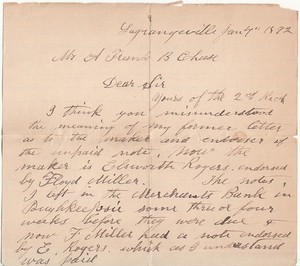 Lagrangeville Jan 4th 1892
Mr. A Frank B Cheek
Dear Sir
Yours of the 2d Recd
I think you misunderstood
the meaning of my former letter
as to the maker and endorser of
the unpaid note, Now the
maker is Elsworth Rogers, endorsed
by Floyd Miller. The notes,
I left in the Merchants Bank in
Poughkeepsie some three or four
weeks before they were due &
now F. Miller had a note endorsed
by E. Rogers, which as I understand
was paid